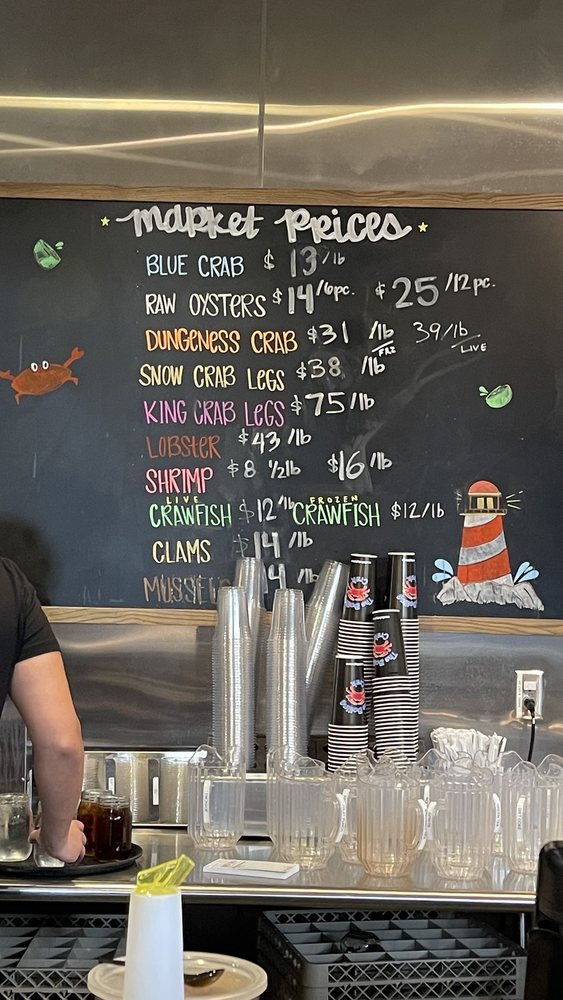 market prices
BLUE CRAB $ 13/lb
RAW OYSTERS $14/6pc. $25/12pc.
DUNGENESS CRAB $31 /lb FRZ 39/lb LIVE
SNOW CRAB LEGS $38 /lb
KING CRAB LEGS $75/lb
LOBSTER $43/lb
SHRIMP $8 1/2lb $16/lb
LIVE CRAWFISH $12/lb FROZEN CRAWFISH $12/lb
CLAMS $14 /lb
4 /lb